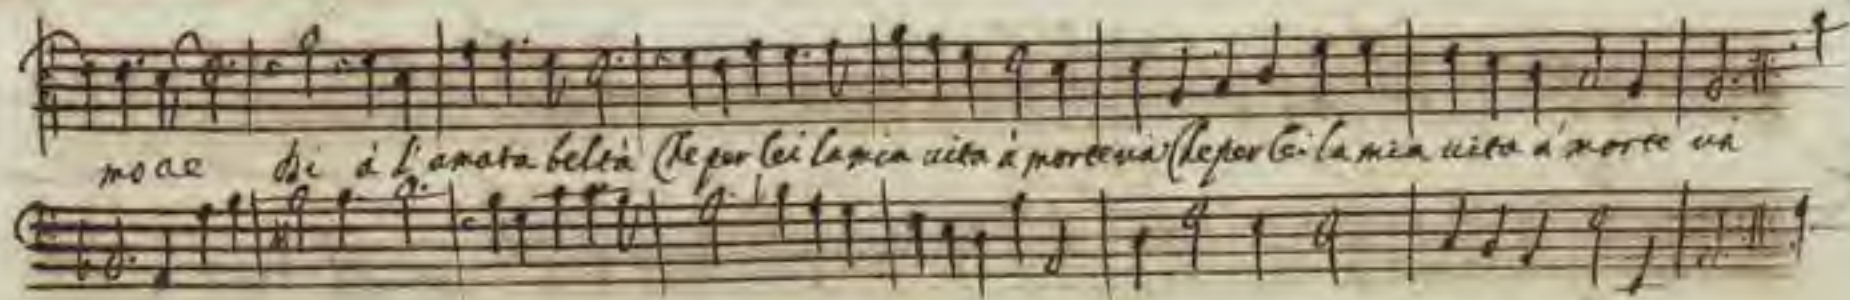 more di à L'amata beltà Che per lei la mia uita à morte uà Che per lei la mia uita à morte uà